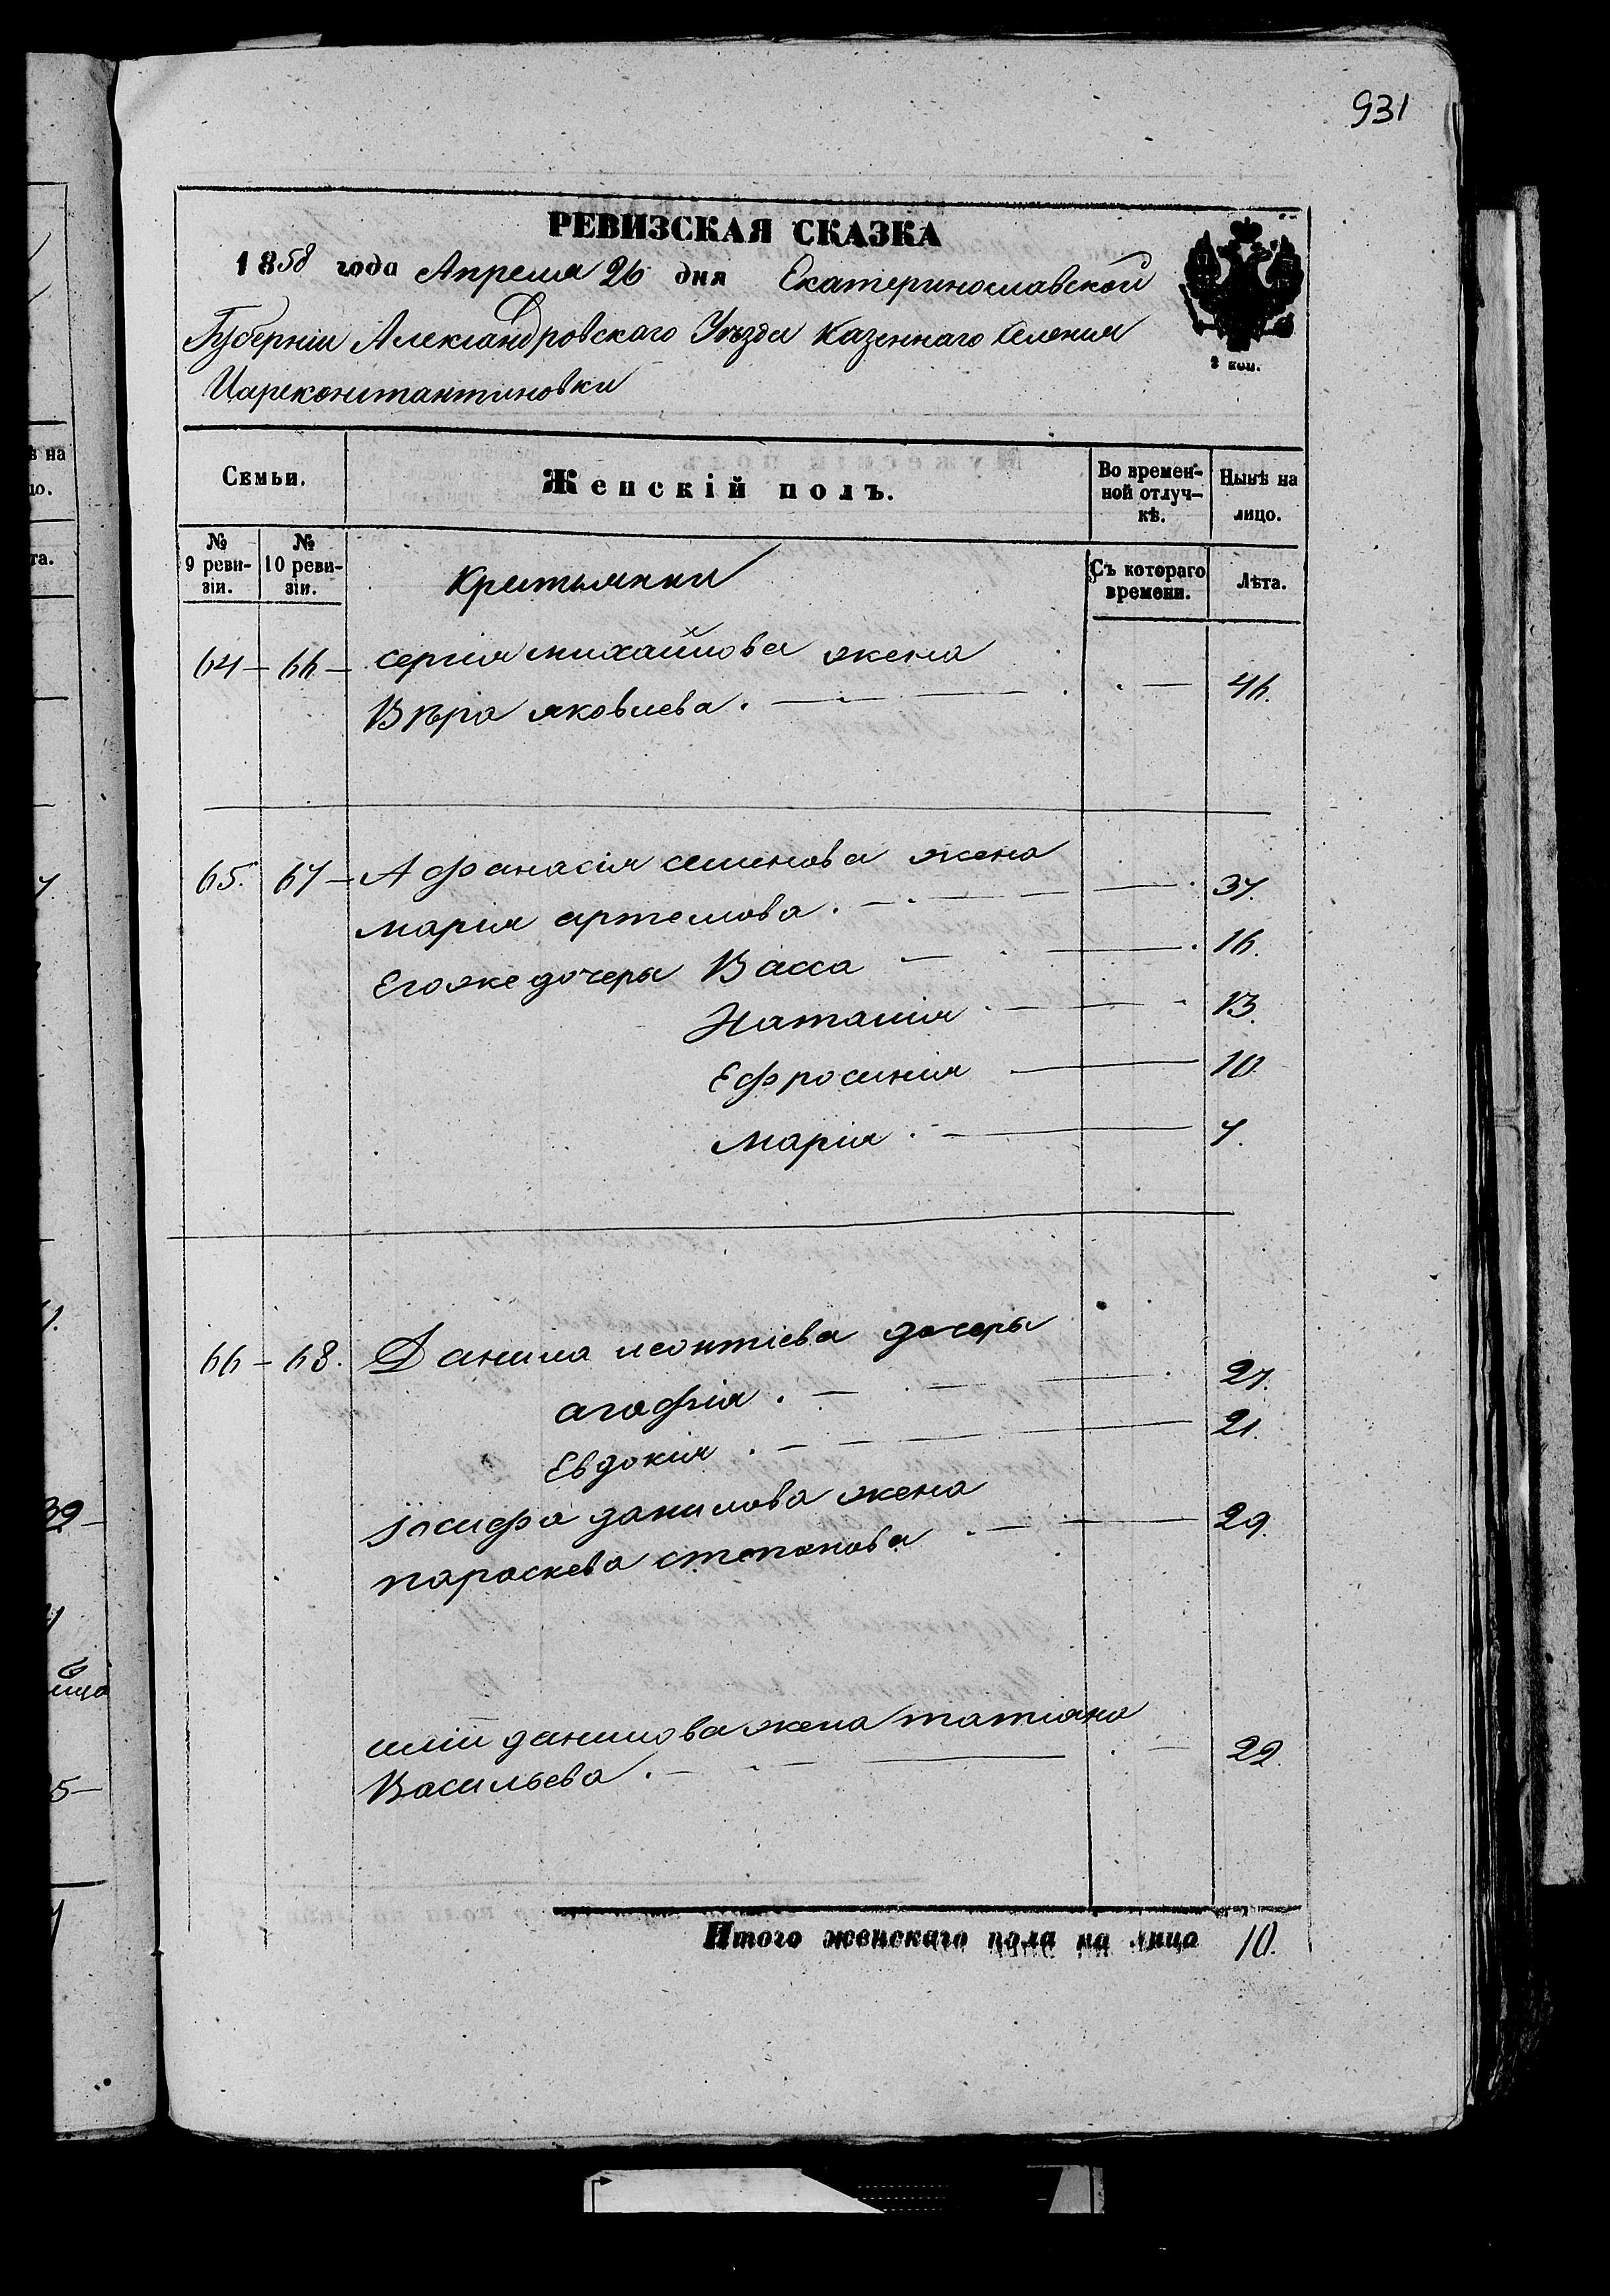 931
РЕВИЗСКАЯ СКАЗКА
1858 года Апреля 26 дня Екатеринославской
Губерніи Александровскаго Уѣзда казеннаго селения
Цареконстантиновки
3 коп.
Семьи.
Женскій полъ.
Во времен-
ной отлуч-
кѣ.
Нынѣ на
лицо.
№
9 реви-
зіи.
№
10 реви-
зіи.
Съ котораго
времени.
Лѣта.
Крестьянки
64 – 66 – сергия михайлова жена
Вѣра яковлева. 46.
65. 67 – Афанасія семенова жена
мария артемова. 37.
Егоже дочеры Васса 16.
Наталия 13.
Ефросиния 10
мария 7.
66 – 68. Данила леонтіева дочеры
агафия 27.
Евдокия 21.
Іосифа данилова жена
параскева степанова 29.
илии данилова жена татиана
Васильева. 22.
Итого женскаго пола на лицо 10.